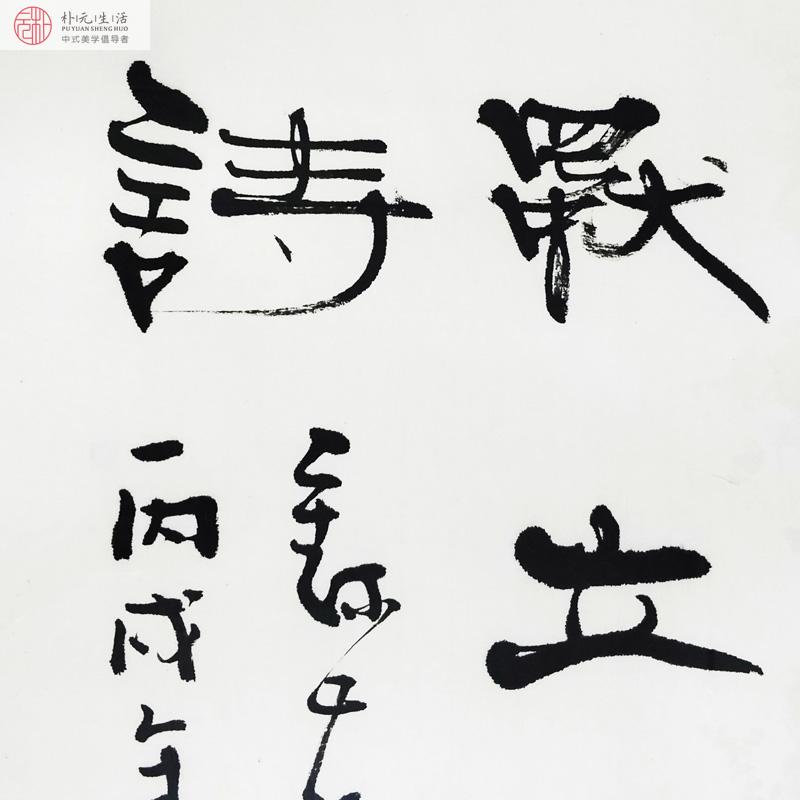 朴元生活
PU YUAN SHENG HUO
中式美学倡导者
戰立
詩
丙戌年